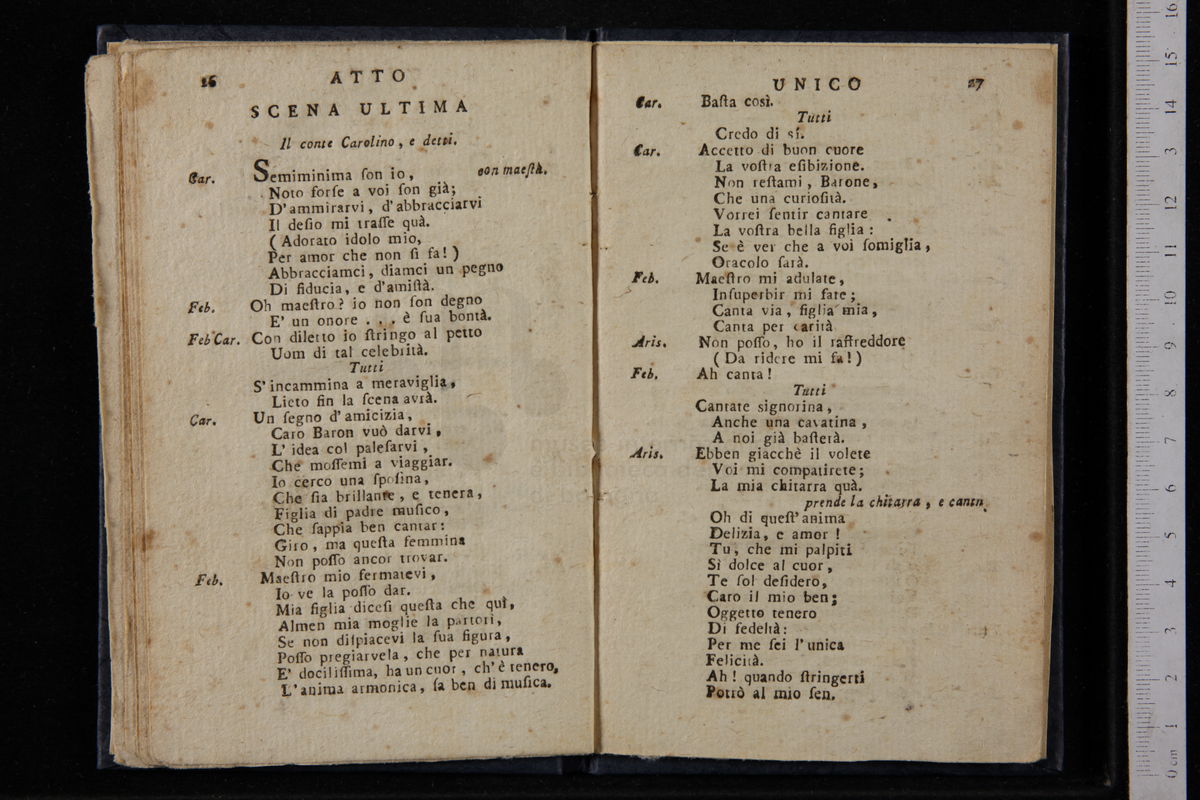 26 ATTO
SCENA ULTIMA
Il conte Carolino, e detti.
Car. Semiminima ſon io, con maeſtà.
Noto forſe a voi ſon già;
D'ammirarvi, d'abbracciarvi
Il deſio mi traſſe quà.
( Adorato idolo mio,
Per amor che non ſi fa! )
Abbracciamci, diamci un pegno
Di fiducia, e d'amiſtà.
Feb. Oh maeſtro? io non ſon degno
E' un onore . . . è ſua bontà.
Feb Car. Con diletto io ſtringo al petto
Uom di tal celebrità.
Tutti
S'incammina a meraviglia,
Lieto fin la ſcena avrà.
Car. Un ſegno d'amicizia,
Caro Baron vuò darvi,
L'idea col paleſarvi,
Che moſſemi a viaggiar.
Io cerco una ſpoſina,
Che ſia brillante, e tenera,
Figlia di padre muſico,
Che ſappia ben cantar:
Giro, ma queſta femmina
Non poſſo ancor trovar.
Feb. Maeſtro mio fermatevi,
Io ve la poſſo dar.
Mia figlia diceſi queſta che quì,
Almen mia moglie la partorì,
Se non diſpiacevi la ſua figura,
Poſſo pregiarvela, che per natura
E' dociliſſima, ha un cuor, ch'è tenero,
L'anima armonica, ſa ben di muſica.
UNICO 27
Car. Baſta così.
Tutti
Credo di sí.
Car. Accetto di buon cuore
La voſtra eſibizione.
Non reſtami, Barone,
Che una curioſità.
Vorrei ſentir cantare
La voſtra bella figlia:
Se è ver che a voi ſomiglia,
Oracolo ſarà.
Feb. Maeſtro mi adulate,
Inſuperbir mi fate;
Canta via, figlia mia,
Canta per carità
Aris. Non poſſo, ho il raffreddore
( Da ridere mi fa! )
Feb. Ah canta!
Tutti
Cantate signorina,
Anche una cavatina,
A noi già baſterà.
Aris. Ebben giacchè il volete
Voi mi compatirete;
La mia chitarra quà.
prende la chitarra, e canta.
Oh di queſt'anima
Delizia, e amor!
Tu, che mi palpiti
Sì dolce al cuor,
Te ſol deſidero,
Caro il mio ben;
Oggetto tenero
Di fedeltà:
Per me ſei l'unica
Felicità.
Ah! quando ſtringerti
Potrò al mio ſen.
0 cm 1 2 3 4 5 6 7 8 9 10 11 12 13 14 15 16